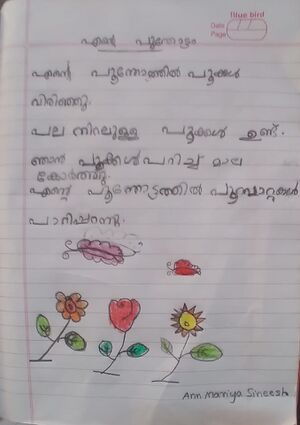 Blue bird
Date
Page
എന്റെ പൂന്തോട്ടം
എന്റെ പൂന്തോട്ടത്തിൽ പൂക്കൾ
വിരിഞ്ഞു.
പല നിറലുള്ള പൂക്കൾ ഉണ്ട്.
ഞാൻ പൂക്കൾ പറിച്ച് മാല
കോർത്തു.
എന്റെ പൂന്തോട്ടത്തിൽ പൂമ്പാറ്റകൾ
പാറിപ്പറന്നു.
Ann Mariya Sineesh